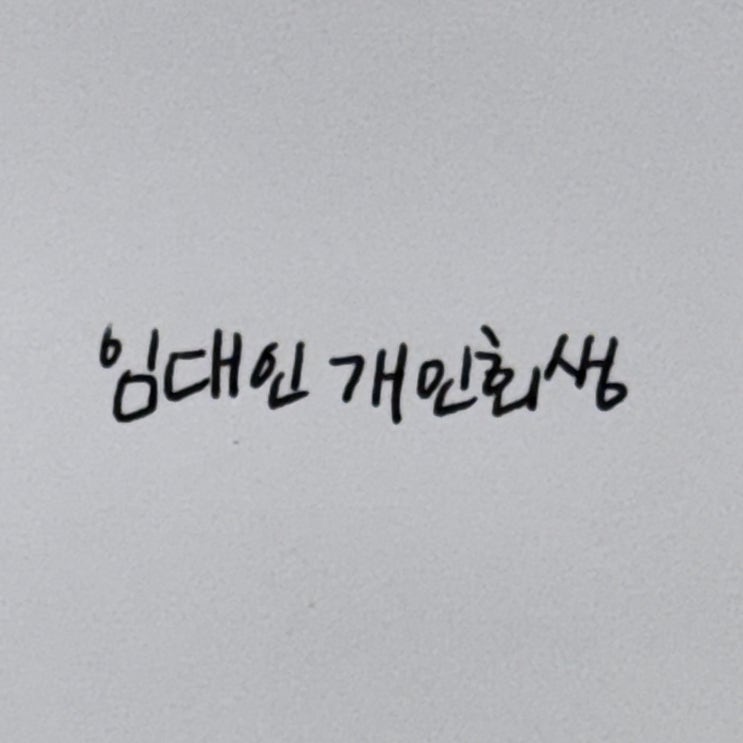 임대인 개인회생